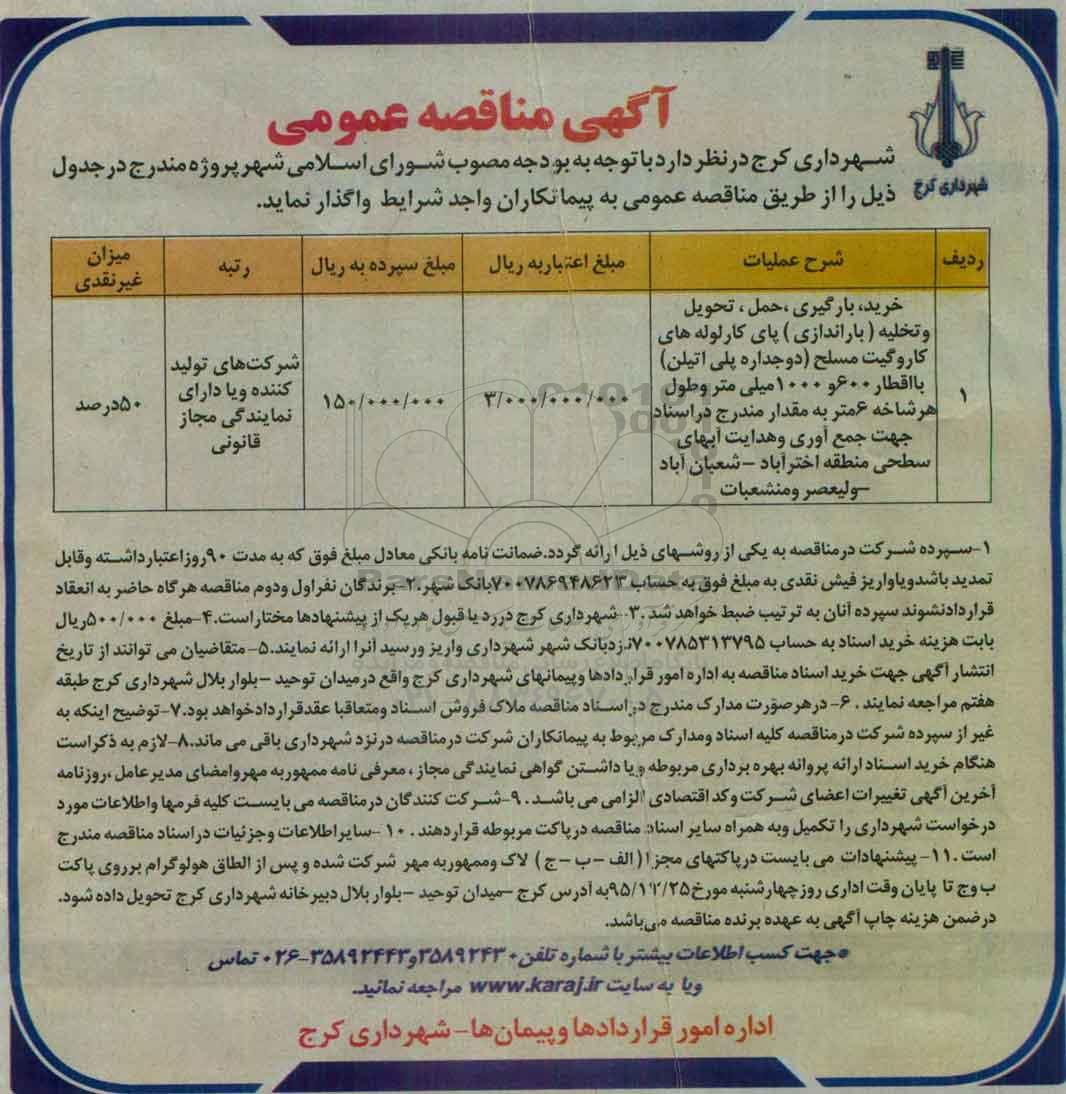 آگهی مناقصه عمومی
شهرداری کرج
شهرداری کرج در نظر دارد با توجه به بودجه مصوب شورای اسلامی شهر پروژه مندرج در جدول
ذیل را از طریق مناقصه عمومی به پیمانکاران واجد شرایط واگذار نماید.
ردیف | شرح عملیات | مبلغ اعتبار به ریال | مبلغ سپرده به ریال | رتبه | میزان غیرنقدی
۱
خرید، بارگیری ،حمل ، تحویل
وتخلیه ( باراندازی ) پای کارلوله های
کاروگیت مسلح (دوجداره پلی اتیلن)
بااقطار ۶۰۰و ۱۰۰۰میلی متر وطول
هرشاخه ۶متر به مقدار مندرج دراسناد
جهت جمع آوری وهدایت آبهای
سطحی منطقه اخترآباد –شعبان آباد
–ولیعصر ومنشعبات
۳/۰۰۰/۰۰۰/۰۰۰
۱۵۰/۰۰۰/۰۰۰
شرکت‌های تولید
کننده ویا دارای
نمایندگی مجاز
قانونی
۵۰درصد
۱-سپرده شرکت درمناقصه به یکی از روشهای ذیل ارائه گردد.ضمانت نامه بانکی معادل مبلغ فوق که به مدت ۹۰روزاعتبارداشته وقابل
تمدید باشدویاواریز فیش نقدی به مبلغ فوق به حساب ۷۰۰۷۸۶۹۴۸۶۲۳بانک شهر.۲-برندگان نفراول ودوم مناقصه هرگاه حاضر به انعقاد
قراردادنشوند سپرده آنان به ترتیب ضبط خواهد شد .۳-شهرداری کرج دررد یا قبول هریک از پیشنهادها مختاراست.۴-مبلغ ۵۰۰/۰۰۰ریال
بابت هزینه خرید اسناد به حساب ۷۰۰۷۸۵۳۱۳۷۹۵نزدبانک شهر شهرداری واریز ورسید آنرا ارائه نمایند.۵-متقاضیان می توانند از تاریخ
انتشار آگهی جهت خرید اسناد مناقصه به اداره امور قراردادها وپیمانهای شهرداری کرج واقع درمیدان توحید –بلوار بلال شهرداری کرج طبقه
هفتم مراجعه نمایند . ۶- درهرصورت مدارک مندرج در اسناد مناقصه ملاک فروش اسناد ومتعاقبا عقدقراردادخواهد بود.۷-توضیح اینکه به
غیر از سپرده شرکت درمناقصه کلیه اسناد ومدارک مربوط به پیمانکاران شرکت درمناقصه درنزد شهرداری باقی می ماند.۸-لازم به ذکراست
هنگام خرید اسناد ارائه پروانه بهره برداری مربوطه ویا داشتن گواهی نمایندگی مجاز ، معرفی نامه ممهوربه مهروامضای مدیرعامل ،روزنامه
آخرین آگهی تغییرات اعضای شرکت وکد اقتصادی الزامی می باشد . ۹-شرکت کنندگان درمناقصه می بایست کلیه فرمها واطلاعات مورد
درخواست شهرداری را تکمیل وبه همراه سایر اسناد مناقصه درپاکت مربوطه قراردهند . ۱۰ -سایراطلاعات وجزئیات دراسناد مناقصه مندرج
است .۱۱- پیشنهادات می بایست درپاکتهای مجزا ( الف –ب –ج ) لاک وممهوربه مهر شرکت شده و پس از الطاق هولوگرام برروی پاکت
ب وج تا پایان وقت اداری روزچهارشنبه مورخ ۹۵/۱۲/۲۵به آدرس کرج –میدان توحید –بلوار بلال دبیرخانه شهرداری کرج تحویل داده شود.
درضمن هزینه چاپ آگهی به عهده برنده مناقصه می‌باشد.
•جهت کسب اطلاعات بیشتر با شماره تلفن ۳۵۸۹۲۴۳۰و۳۵۸۹۲۴۴۳-۰۲۶ تماس
ویا به سایت www.karaj.ir مراجعه نمائید.
اداره امور قراردادها وپیمان‌ها- شهرداری کرج